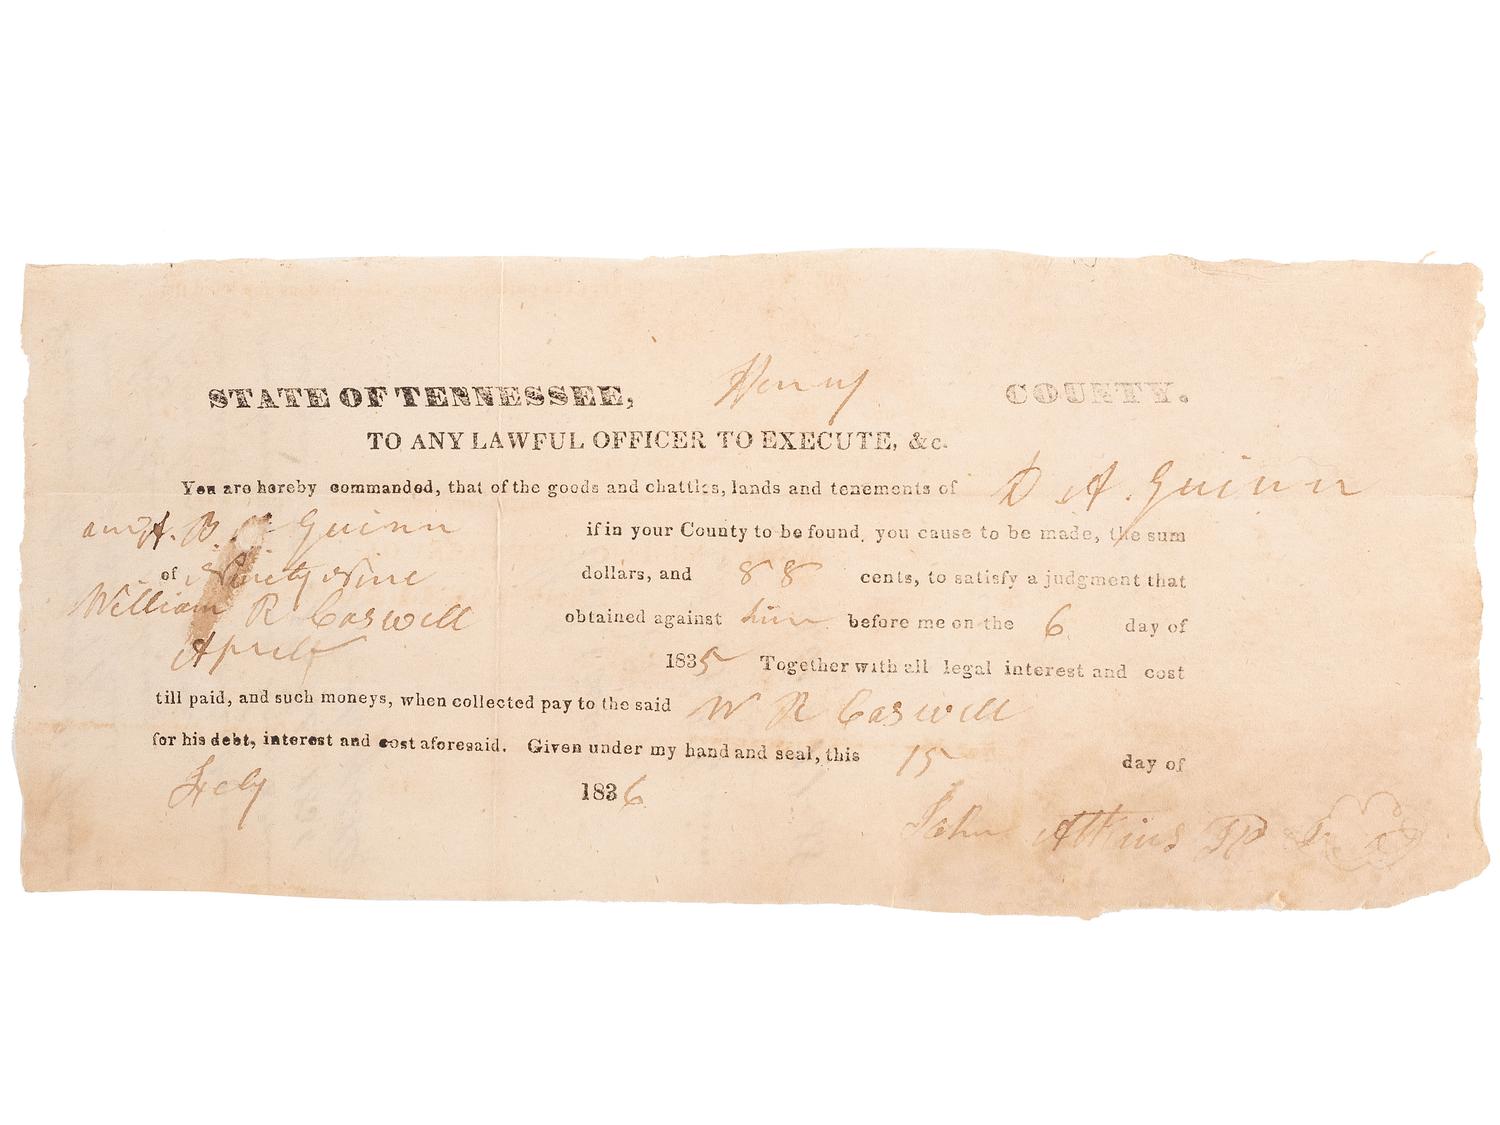 STATE OF TENNESSEE, Henry COUNTY.
TO ANY LAWFUL OFFICER TO EXECUTE, &c.
You are hereby commanded, that of the goods and chattles, lands and tenements of D A. Guinn
and A. B. Guinn if in your County to be found, you cause to be made, the sum
of Ninety Nine dollars, and 88 cents, to satisfy a judgment that
William R Caswell obtained against him before me on the 6 day of
Aprill 1835 Together with all legal interest and cost
till paid, and such moneys, when collected pay to the said W R Caswell
for his debt, interest and cost aforesaid. Given under my hand and seal, this 15 day of
Feby 1836
John Atkins JP